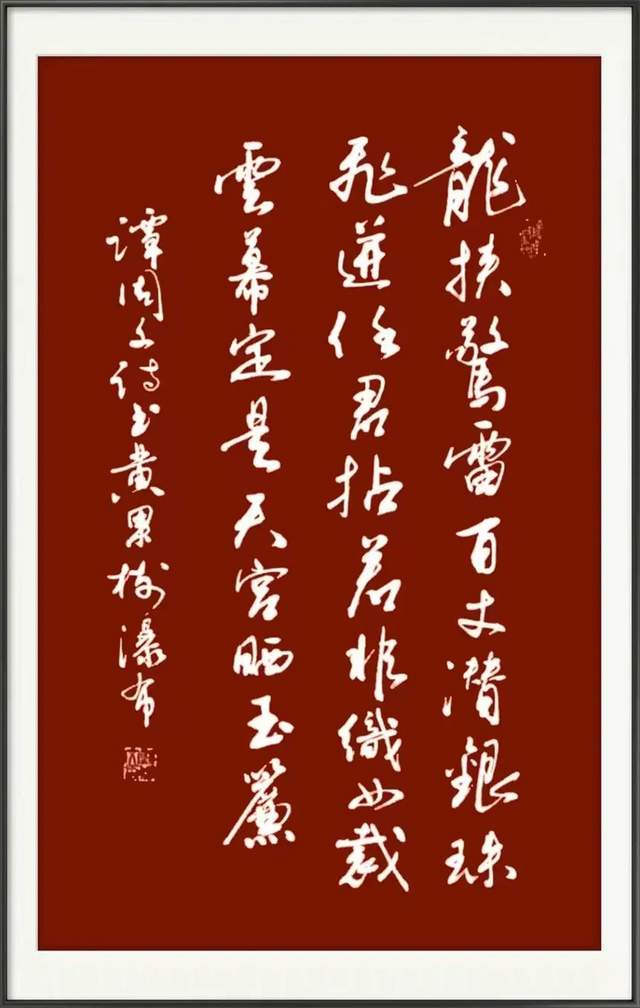 龍挾驚雷百丈潛銀珠
飛迸任君拈若非織女裁
雲幕定是天宮晒玉簾
譚周文詩書黃果樹瀑布